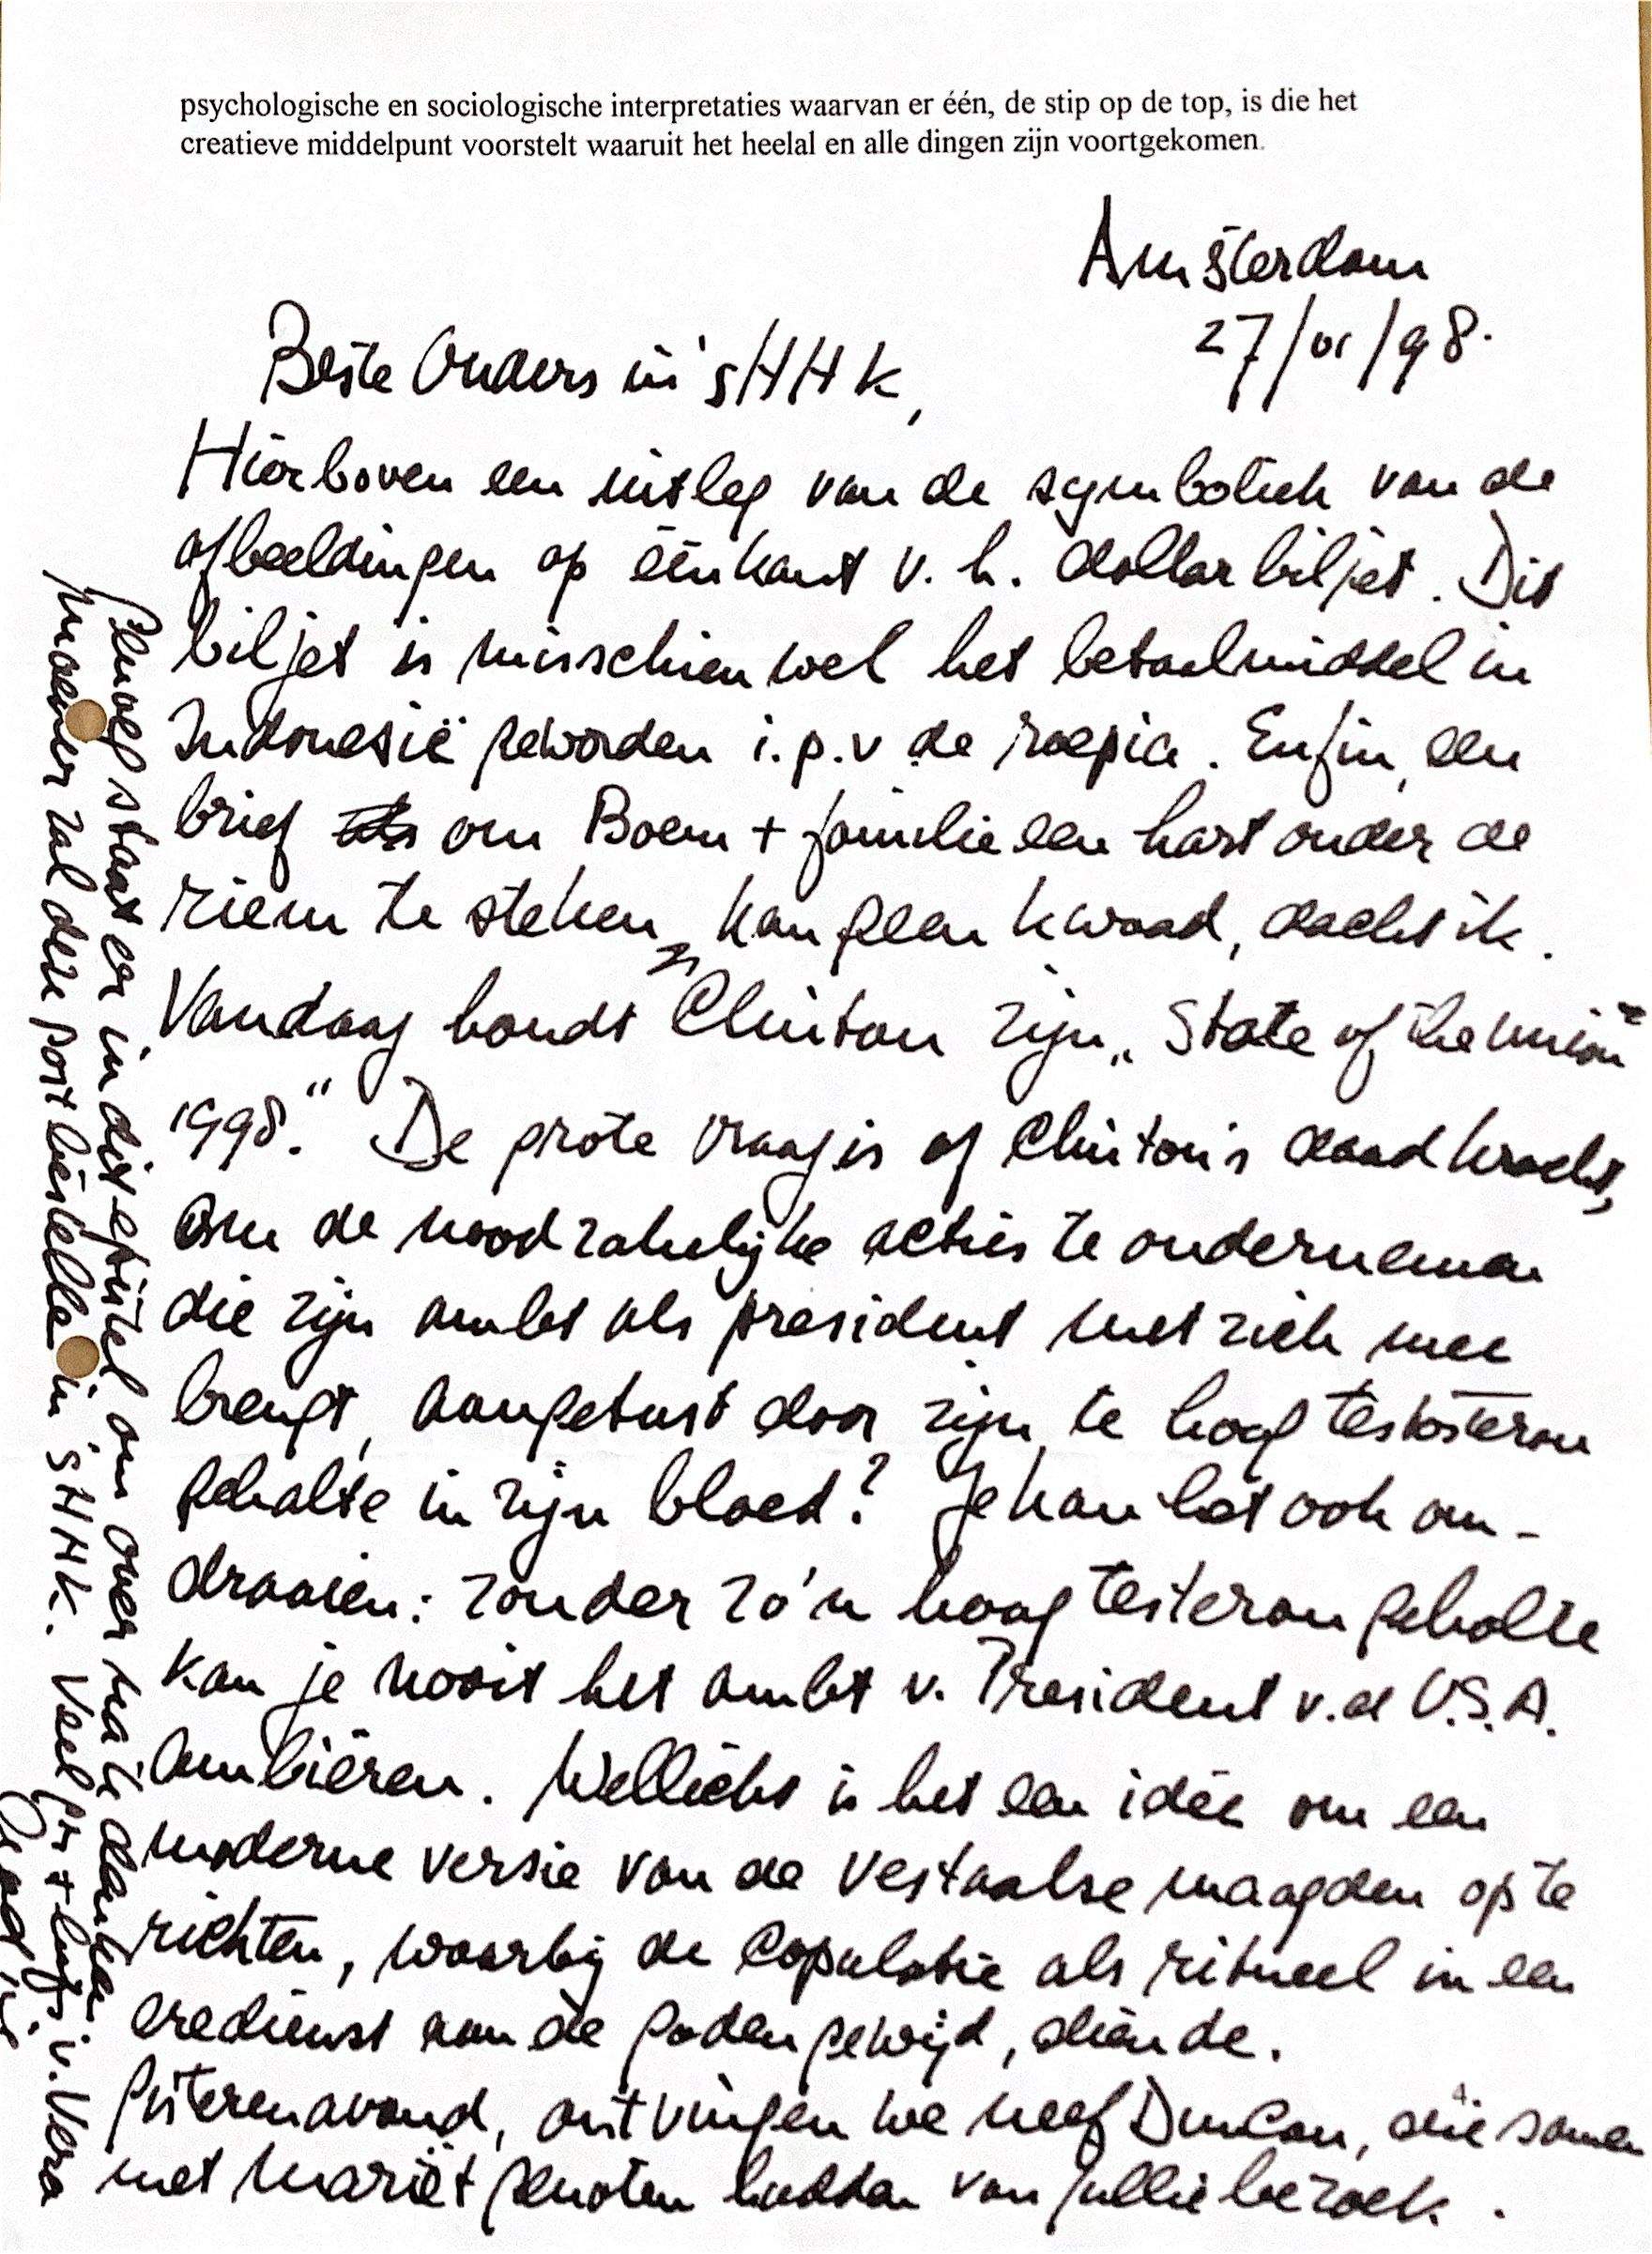 psychologische en sociologische interpretaties waarvan er één, de stip op de top, is die het
creatieve middelpunt voorstelt waaruit het heelal en alle dingen zijn voortgekomen.
Amsterdam
27/01/98.
Beste Ouders in 'sHHK,
Hierboven een uitleg van de symboliek van de
afbeeldingen op één kant v. h. dollarbiljet. Dit
biljet is misschien wel het betaalmiddel in
Indonesië geworden i.p.v de roepia. Enfin, een
brief om Boem + familie een hart onder de
riem te steken, kan geen kwaad, dacht ik.
Vandaag houdt Clinton zijn „State of the Union
1998." De grote vraag is of Clinton's daadkracht,
om de noodzakelijke acties te ondernemen
die zijn ambt als president met zich mee
brengt, aangetast door zijn, te hoog testosteron
gehalte in zijn bloed? Je kan het ook om-
draaien: zonder zo'n hoog testeron gehalte
kan je nooit het ambt v. President v.d U.S.A.
ambiëren. Wellicht is het een idée om een
moderne versie van de vestaalse maagden op te
richten, waarbij de copulatie als ritueel in een
eredienst aan de goden gewijd, diende.
Gisterenavond, ontvingen we neef Duncan, die samen
met Mariët genoten hadden van jullie bezoek.
Genoeg staat er in dit epistel om over na te denken
maar zal deze post bestellen in 'sHHK. Veel gr + liefs v. Vera